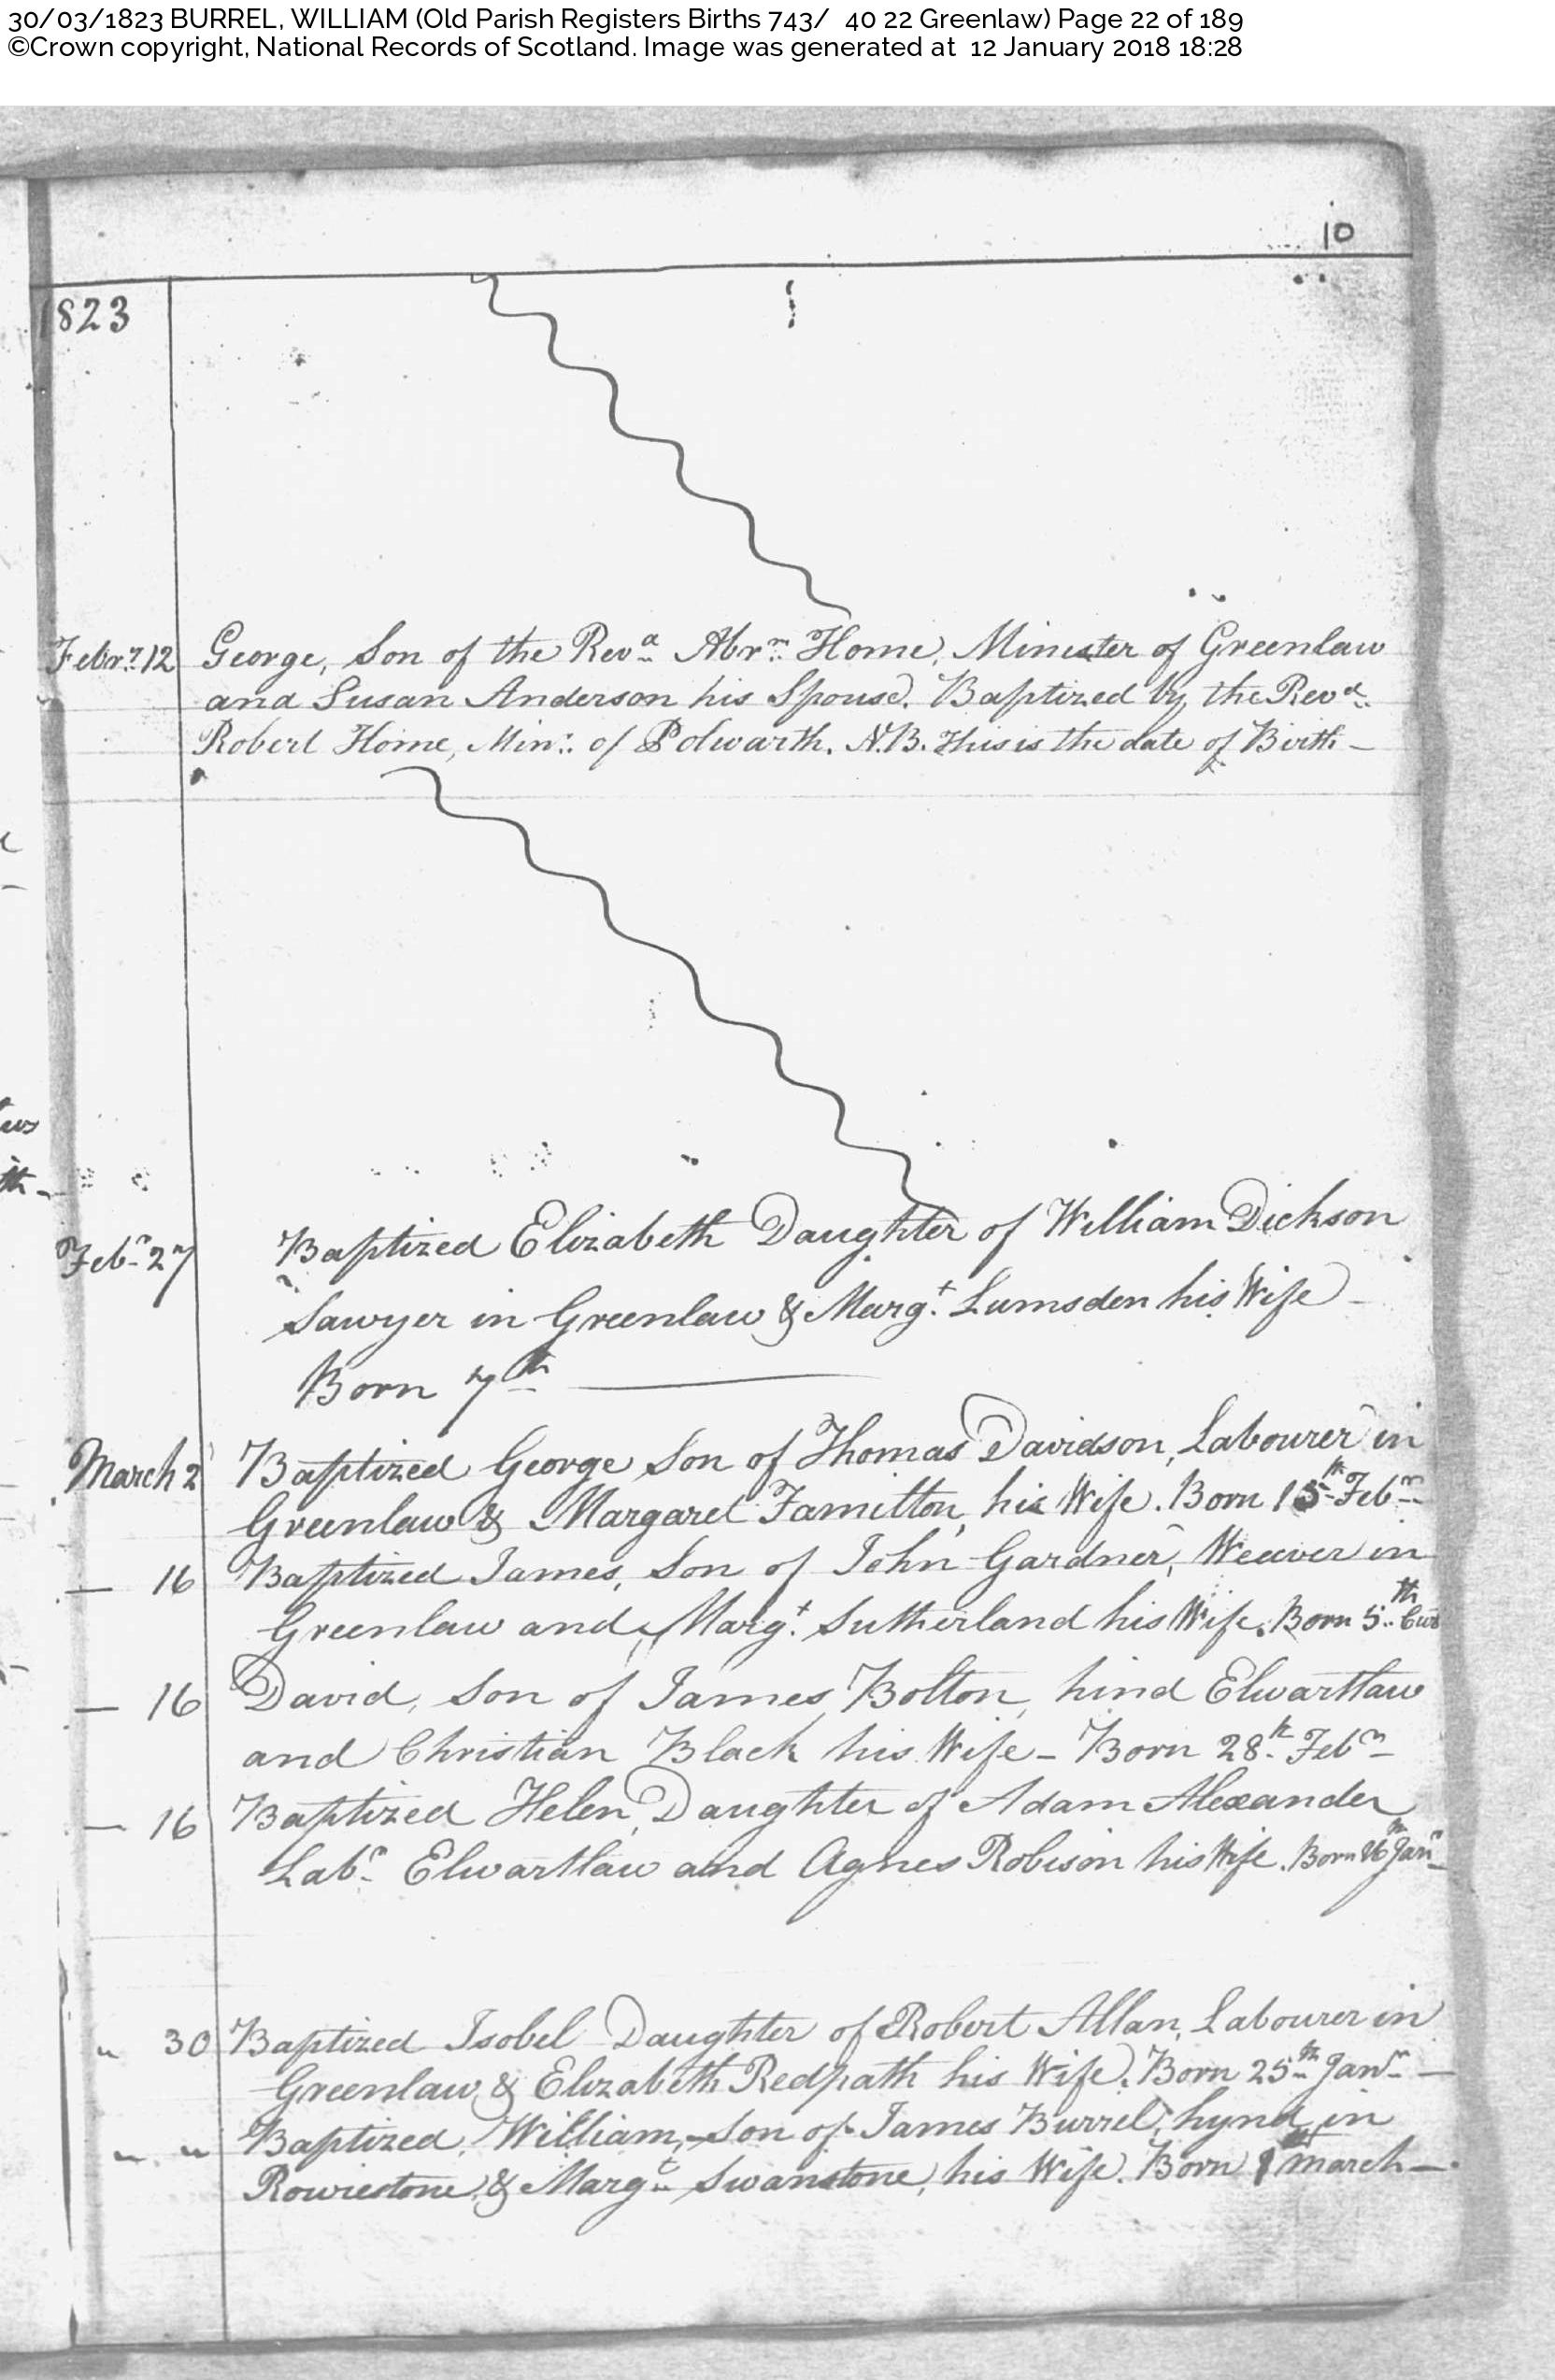 30/03/1823 BURREL, WILLIAM (Old Parish Registers Births 743/ 40 22 Greenlaw) Page 22 of 189
©Crown copyright, National Records of Scotland. Image was generated at 12 January 2018 18:28
10
1823
Febry. 12 George, Son of the Revd. Abrm. Home, Minister of Greenlaw
and Susan Anderson his Spouse. Baptized by the Revd.
Robert Home, Minr. of Polwarth. N.B. This is the date of Birth –
Feby. 27 Baptized Elizabeth Daughter of William Dickson
Sawyer in Greenlaw & Margt. Lumsden his Wife –
Born 7th
March 2 Baptized George Son of Thomas Davidson, Labourer in
Greenlaw & Margaret his Wife. Born 15th Feby.
— 16 Baptized James, Son of John Gardner, Weaver in
Greenlaw and Margt. Sutherland his Wife. Born 5th
— 16 David, Son of James Bolton, hind Elwartlaw
and Christian Black his Wife – Born 28th Feby.
— 16 Baptized Helen, Daughter of Adam Alexander
Labr. Elwartlaw and Agnes Robison his Wife. Born 16th Jany.
" 30 Baptized Isobel Daughter of Robert Allan, Labourer in
Greenlaw & Elizabeth Redpath his Wife. Born 25th Jany. —
" " Baptized William, Son of James Burrel, hynd in
Rowiestone & Margt. Swanstone, his Wife. Born 1st March —